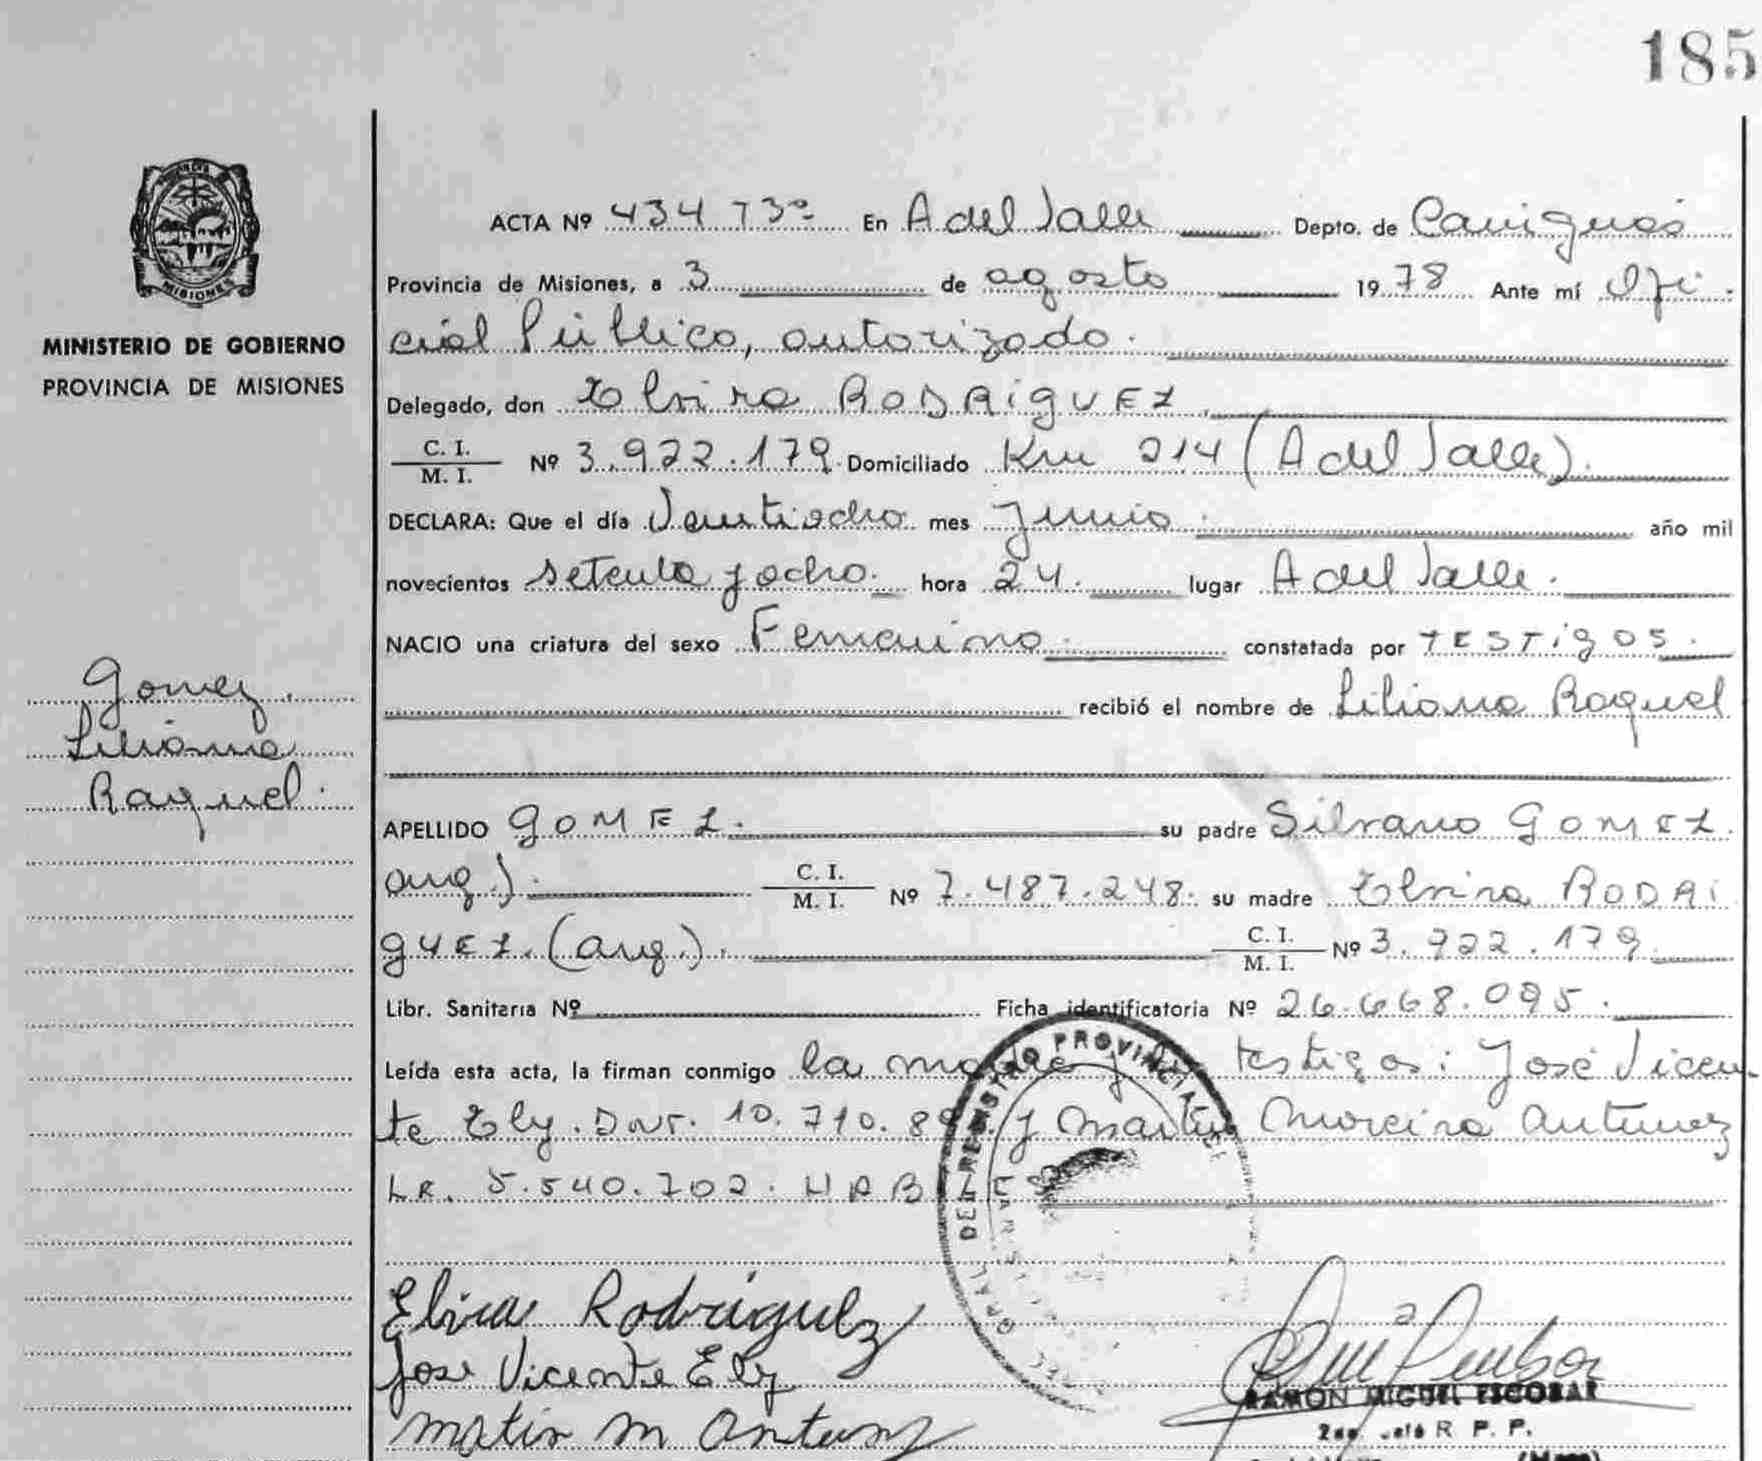 185
MINISTERIO DE GOBIERNO
PROVINCIA DE MISIONES
MISIONES
Gomez.
Liliana
Raquel.
ACTA Nº 434 T3º En A del Valle Depto. de Cainguás
Provincia de Misiones, a 3 de agosto 1978 Ante mí Ofi-
cial Público, autorizado.
Delegado, don Elvira RODRIGUEZ
C. I. / M. I. Nº 3.922.179. Domiciliado Km 214 (A del Valle).
DECLARA: Que el día Veintiocho mes Junio. año mil
novecientos setenta y ocho. hora 24. lugar A del Valle.
NACIO una criatura del sexo Femenino. constatada por TESTIGOS.
recibió el nombre de Liliana Raquel
APELLIDO GOMEZ. su padre Silvano GOMEZ
arg.). C. I. / M. I. Nº 7.487.248. su madre Elvira RODRI
GUEZ. (arg.). C. I. / M. I. Nº 3.922.179.
Libr. Sanitaria Nº Ficha identificatoria Nº 26.668.095.
Leída esta acta, la firman conmigo la madre y testigos: José Vicen-
te Ely. 10.710. y Martin Moreira Antunez
5.540.702.
DEL REGISTRO PROVINCIAL DE
Elvira Rodriguelz
Jose Vicente Ely
matin m Antunz
RAMON MIGUEL ESCOBAR
R. P. P.